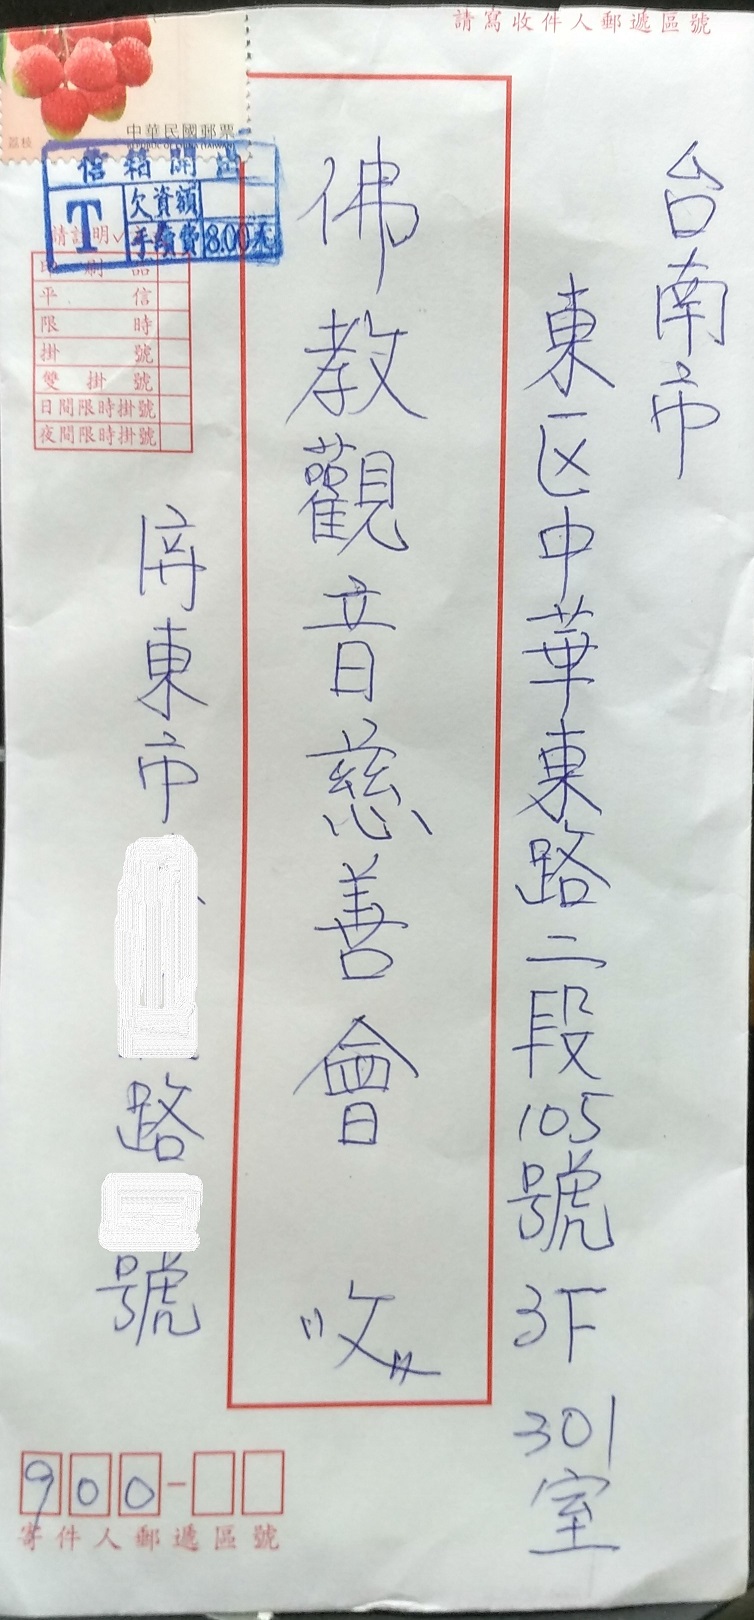 請寫收件人郵遞區號
台南市
東区中華東路二段105號3F301室
佛教觀音慈善會 收
中華民國郵票
荔枝
信箱開出
T
欠資額
手續費 8.00元
請註明✓
印刷品
平信
限時
掛號
雙掛號
日間限時掛號
夜間限時掛號
屏東市
路
號
900-
寄件人郵遞區號